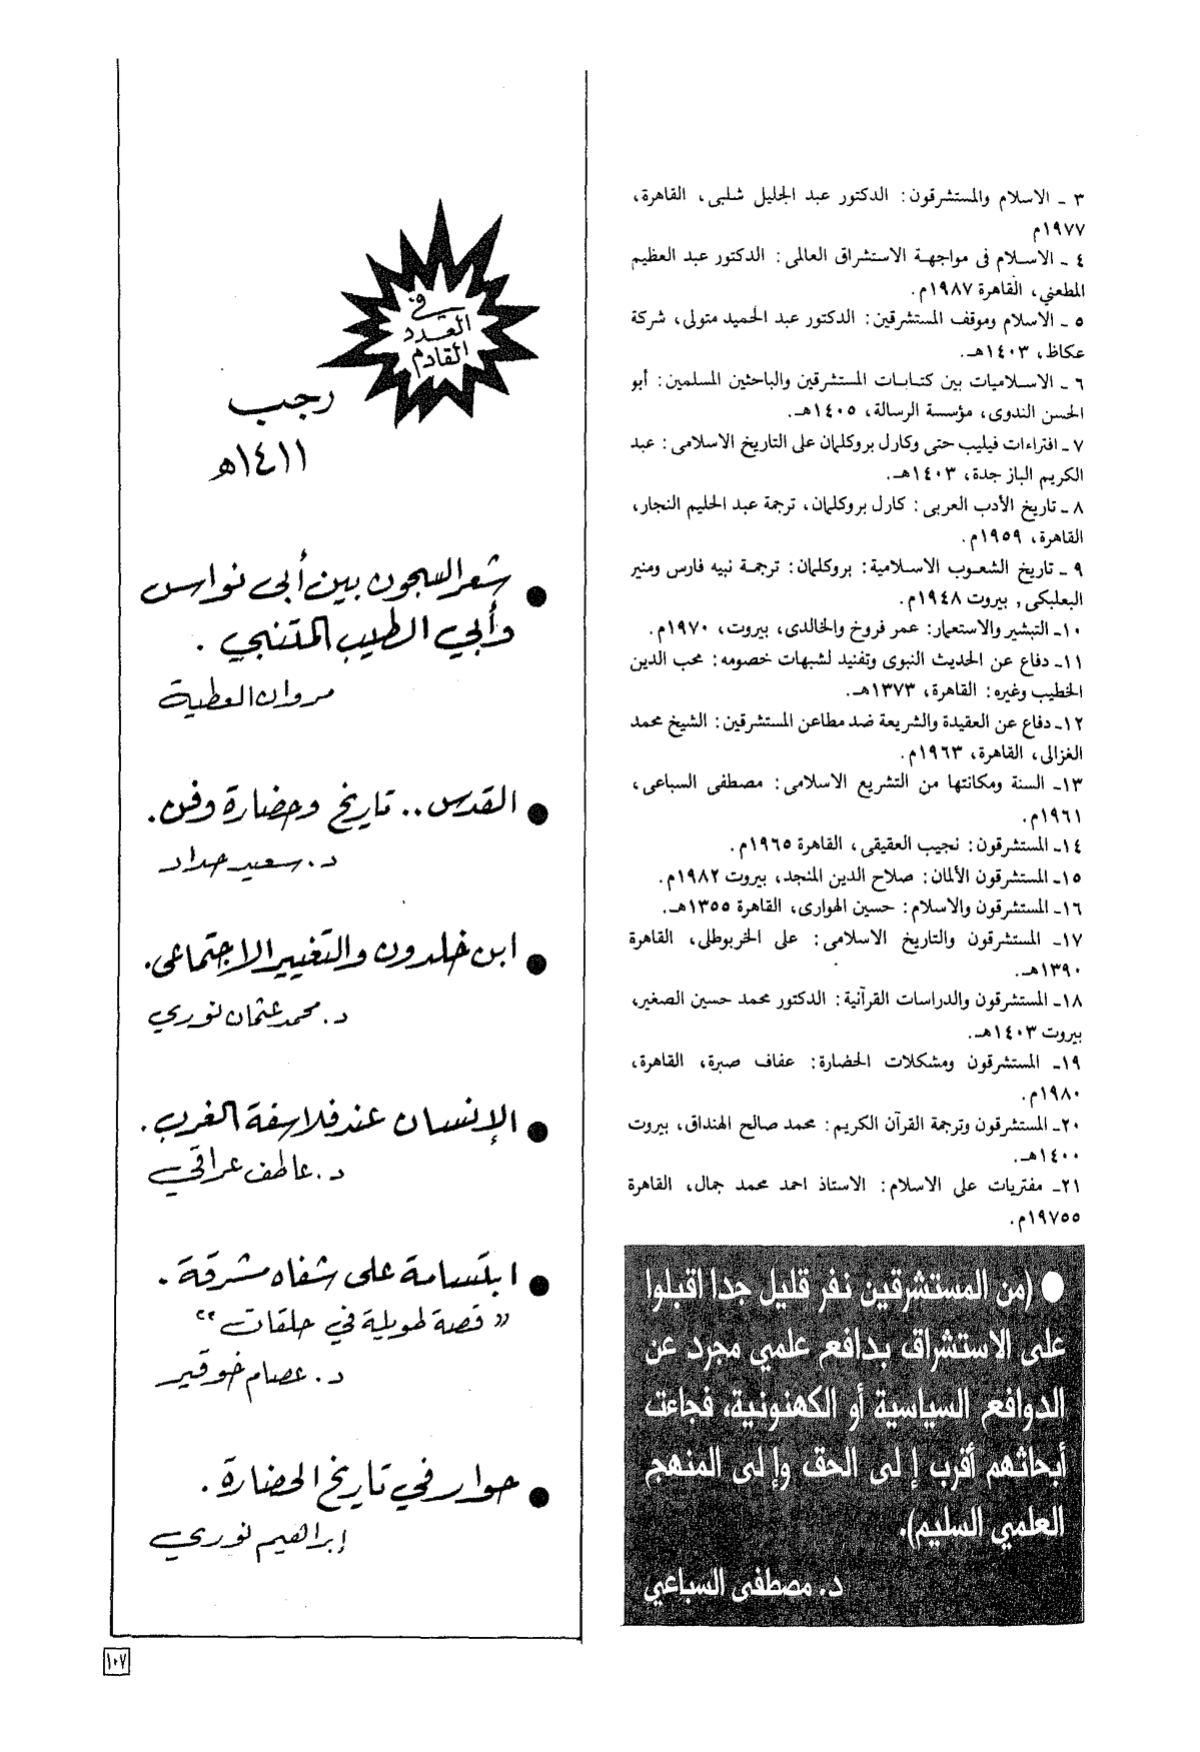 ٣ ـ الاسلام والمستشرقون: الدكتور عبد الجليل شلبى، القاهرة،
١٩٧٧م
٤ ـ الاسلام فى مواجهة الاستشراق العالمى: الدكتور عبد العظيم
المطعني، القاهرة ١٩٨٧م.
٥ ـ الاسلام وموقف المستشرقين: الدكتور عبد الحميد متولى، شركة
عكاظ، ١٤٠٣هـ.
٦ ـ الاسلاميات بين كتابات المستشرقين والباحثين المسلمين: أبو
الحسن الندوى، مؤسسة الرسالة، ١٤٠٥هـ.
٧ ـ افتراءات فيليب حتى وكارل بروكلمان على التاريخ الاسلامى: عبد
الكريم الباز جدة، ١٤٠٣هـ.
٨ ـ تاريخ الأدب العربى: كارل بروكلمان، ترجمة عبد الحليم النجار،
القاهرة، ١٩٥٩م.
٩ ـ تاريخ الشعوب الاسلامية: بروكلمان: ترجمة نبيه فارس ومنير
البعلبكى, بيروت ١٩٤٨م.
١٠ـ التبشير والاستعمار: عمر فروخ والخالدى، بيروت، ١٩٧٠م.
١١ـ دفاع عن الحديث النبوى وتفنيد لشبهات خصومه: محب الدين
الخطيب وغيره: القاهرة، ١٣٧٣هـ.
١٢ـ دفاع عن العقيدة والشريعة ضد مطاعن المستشرقين: الشيخ محمد
الغزالى، القاهرة، ١٩٦٣م.
١٣ـ السنة ومكانتها من التشريع الاسلامى: مصطفى السباعى،
١٩٦١م.
١٤ـ المستشرقون: نجيب العقيقى، القاهرة ١٩٦٥م.
١٥ـ المستشرقون الألمان: صلاح الدين المنجد، بيروت ١٩٨٢م.
١٦ـ المستشرقون والاسلام: حسين الهوارى، القاهرة ١٣٥٥هـ.
١٧ـ المستشرقون والتاريخ الاسلامى: على الخربوطلى، القاهرة
١٣٩٠هـ.
١٨ـ المستشرقون والدراسات القرآنية: الدكتور محمد حسين الصغير،
بيروت ١٤٠٣هـ.
١٩ـ المستشرقون ومشكلات الحضارة: عفاف صبرة، القاهرة،
١٩٨٠م.
٢٠ـ المستشرقون وترجمة القرآن الكريم: محمد صالح الهنداق، بيروت
١٤٠٠هـ.
٢١ـ مفتريات على الاسلام: الاستاذ احمد محمد جمال، القاهرة
١٩٧٥٥م.
● (من المستشرقين نفر قليل جدا اقبلوا
على الاستشراق بدافع علمي مجرد عن
الدوافع السياسية أو الكهنونية، فجاءت
أبحاثهم أقرب إلى الحق وإلى المنهج
العلمي السليم).
د. مصطفى السباعي
في
العدد
القادم
رجب
١٤١١هـ
● شعر السجون بين أبى نواس
وأبي الطيب المتنبي .
مروان العطية
● القدس.. تاريخ وحضارة وفن.
د. سعيد حداد
● ابن خلدون والتغيير الاجتماعى.
د. محمد عثمان نوري
● الإنسان عند فلاسفة الغرب.
د. عاطف عراقي
● ابتسامة على شفاه مشرقة.
"قصة طويلة في حلقات"
د. عصام خوقير
● حوار في تاريخ الحضارة.
إبراهيم نوري
١٠٧